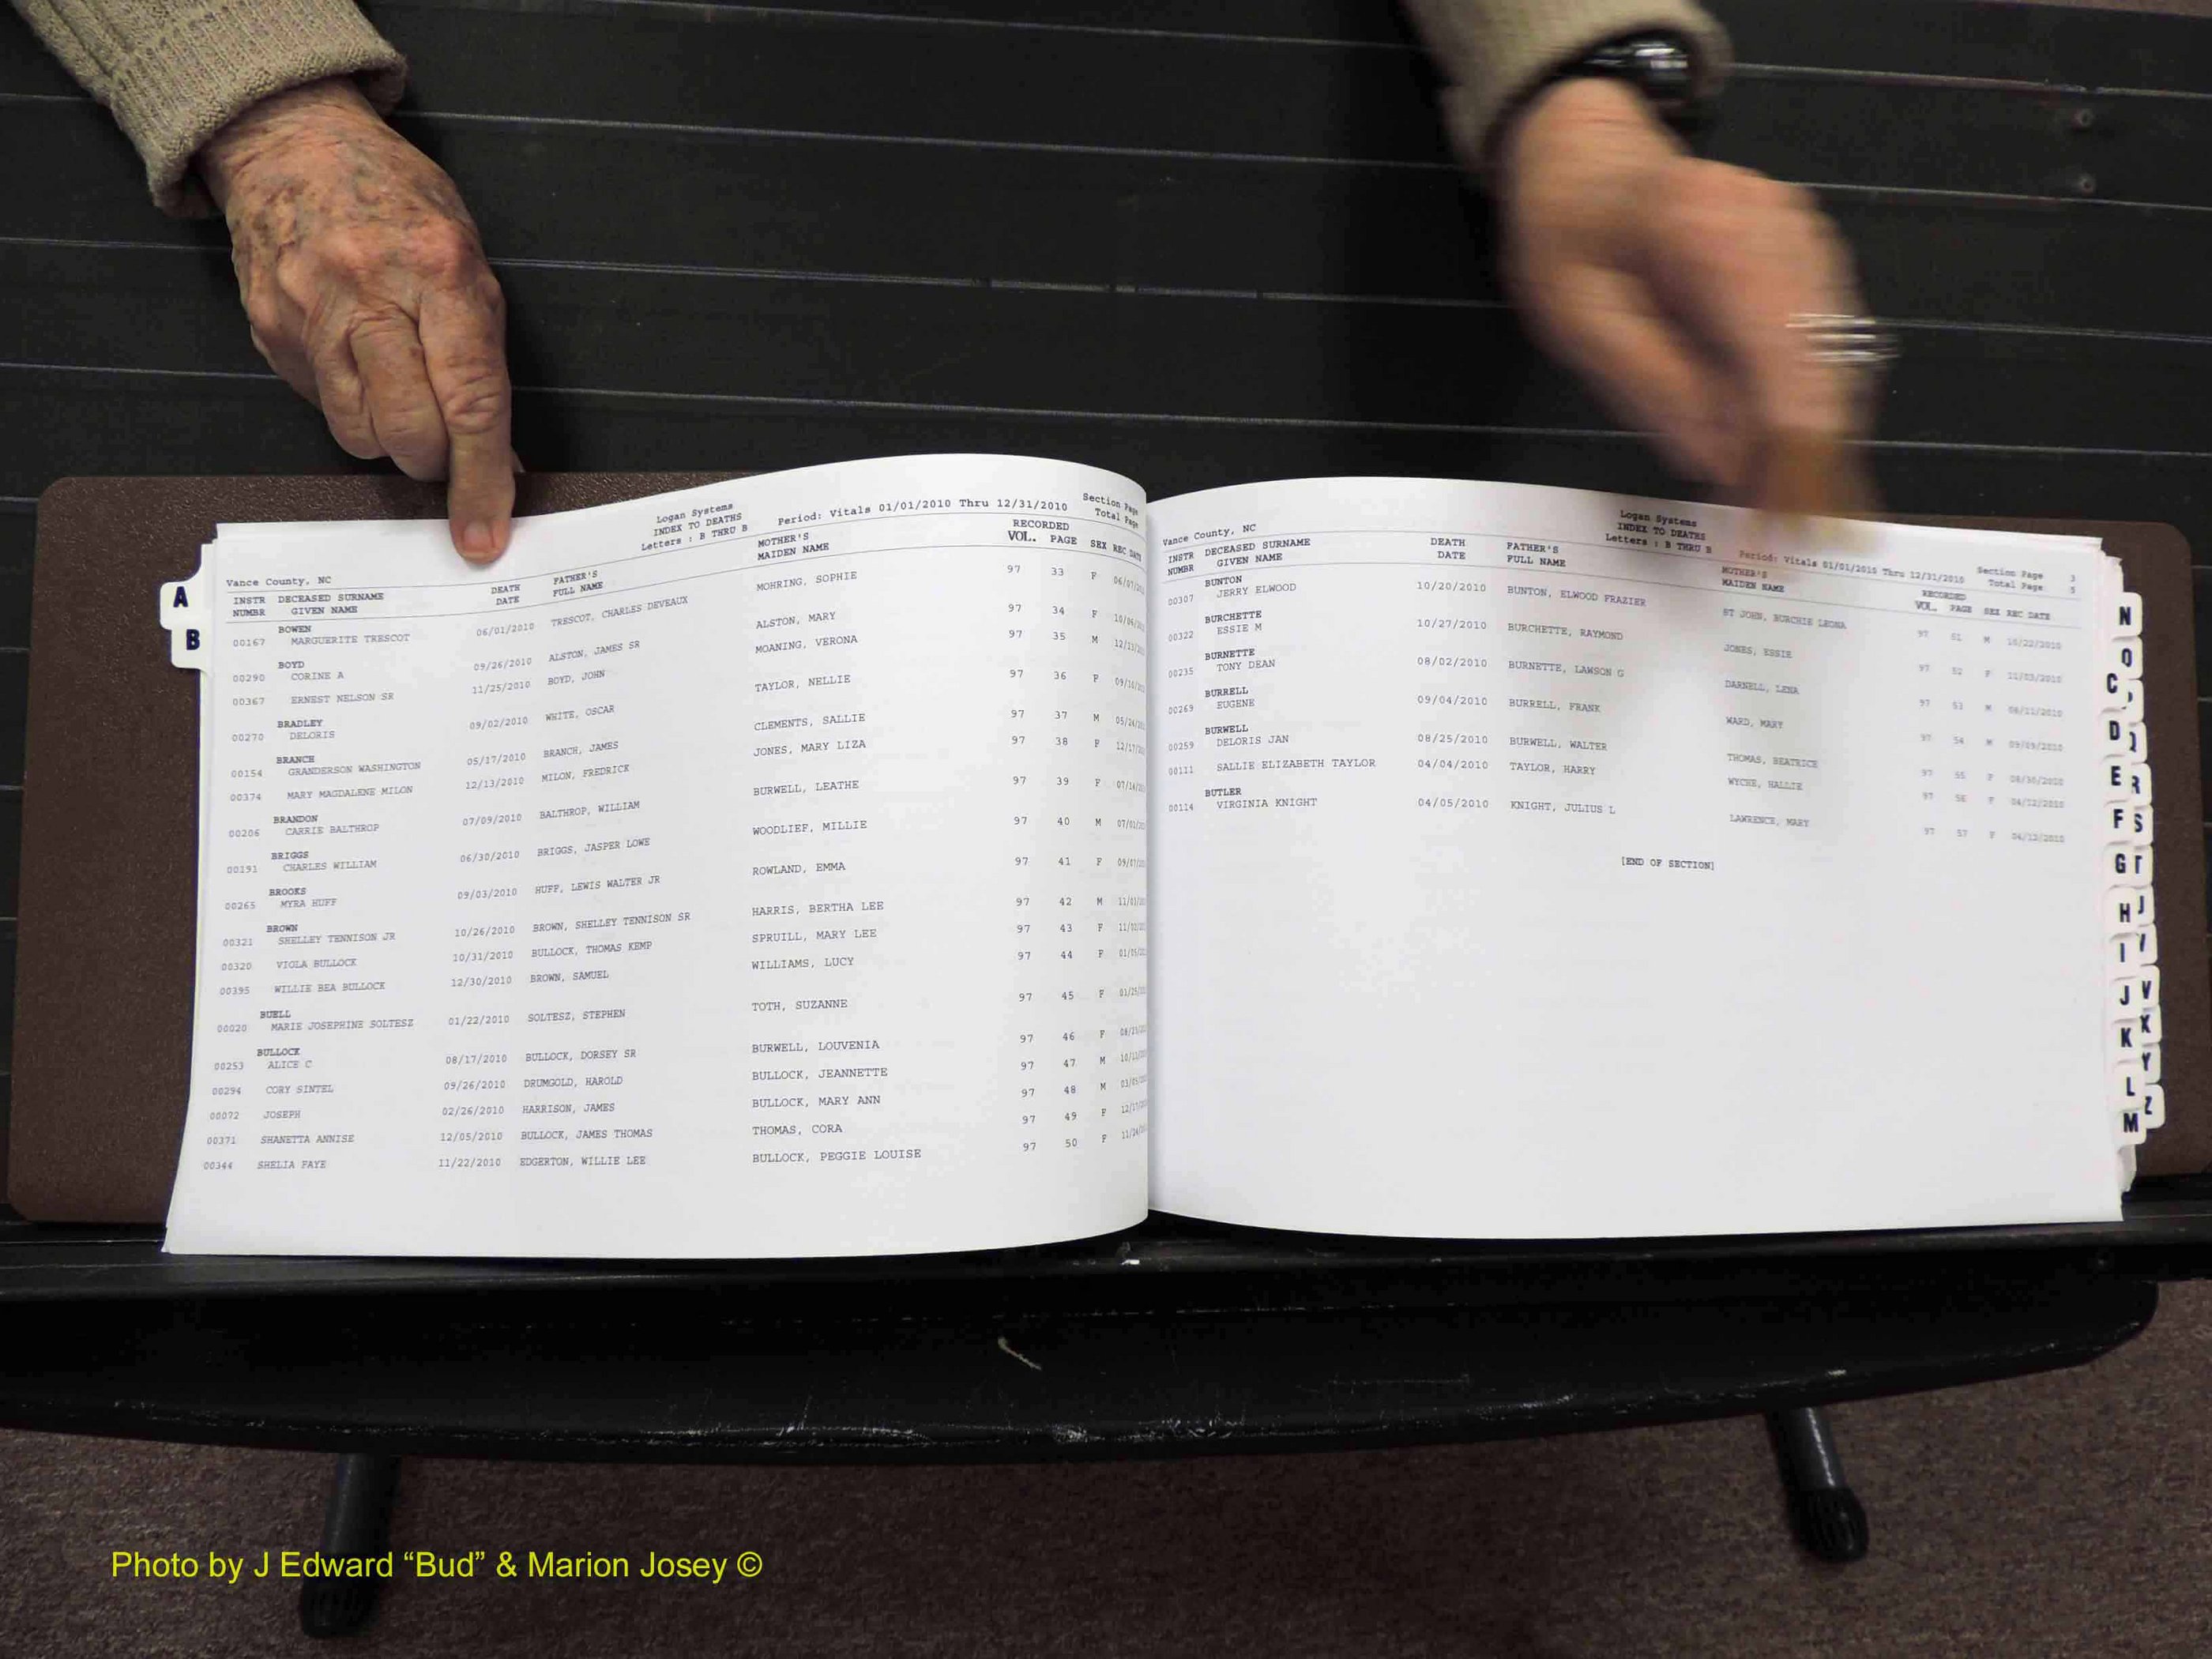 Logan Systems
INDEX TO DEATHS
Letters : B THRU B
Period: Vitals 01/01/2010 Thru 12/31/2010
Section Page
Total Page
Vance County, NC
INSTR DECEASED SURNAME DEATH FATHER'S MOTHER'S RECORDED
NUMBR GIVEN NAME DATE FULL NAME MAIDEN NAME VOL. PAGE SEX REC DATE
BOWEN
00167 MARGUERITE TRESCOT 06/01/2010 TRESCOT, CHARLES DEVEAUX MOHRING, SOPHIE 97 33 F
BOYD
00290 CORINE A 09/26/2010 ALSTON, JAMES SR ALSTON, MARY 97 34 F
00367 ERNEST NELSON SR 11/25/2010 BOYD, JOHN MOANING, VERONA 97 35 M
BRADLEY
00270 DELORIS 09/02/2010 WHITE, OSCAR TAYLOR, NELLIE 97 36 F
BRANCH
00154 GRANDERSON WASHINGTON 05/17/2010 BRANCH, JAMES CLEMENTS, SALLIE 97 37 M
00374 MARY MAGDALENE MILON 12/13/2010 MILON, FREDRICK JONES, MARY LIZA 97 38 F
BRANDON
00206 CARRIE BALTHROP 07/09/2010 BALTHROP, WILLIAM BURWELL, LEATHE 97 39 F
BRIGGS
00191 CHARLES WILLIAM 06/30/2010 BRIGGS, JASPER LOWE WOODLIEF, MILLIE 97 40 M
BROOKS
00265 MYRA HUFF 09/03/2010 HUFF, LEWIS WALTER JR ROWLAND, EMMA 97 41 F
BROWN
00321 SHELLEY TENNISON JR 10/26/2010 BROWN, SHELLEY TENNISON SR HARRIS, BERTHA LEE 97 42 M
00320 VIOLA BULLOCK 10/31/2010 BULLOCK, THOMAS KEMP SPRUILL, MARY LEE 97 43 F
00395 WILLIE BEA BULLOCK 12/30/2010 BROWN, SAMUEL WILLIAMS, LUCY 97 44 F
BUELL
00020 MARIE JOSEPHINE SOLTESZ 01/22/2010 SOLTESZ, STEPHEN TOTH, SUZANNE 97 45 F
BULLOCK
00253 ALICE C 08/17/2010 BULLOCK, DORSEY SR BURWELL, LOUVENIA 97 46 F
00294 CORY SINTEL 09/26/2010 DRUMGOLD, HAROLD BULLOCK, JEANNETTE 97 47 M
00072 JOSEPH 02/26/2010 HARRISON, JAMES BULLOCK, MARY ANN 97 48 M
00371 SHANETTA ANNISE 12/05/2010 BULLOCK, JAMES THOMAS THOMAS, CORA 97 49 F
00344 SHELIA FAYE 11/22/2010 EDGERTON, WILLIE LEE BULLOCK, PEGGIE LOUISE 97 50 F
A
B
Logan Systems
INDEX TO DEATHS
Letters : B THRU B
Period: Vitals 01/01/2010 Thru 12/31/2010
Section Page 3
Total Page 5
Vance County, NC
INSTR DECEASED SURNAME DEATH FATHER'S MOTHER'S RECORDED
NUMBR GIVEN NAME DATE FULL NAME MAIDEN NAME VOL. PAGE SEX REC DATE
BUNTON
00307 JERRY ELWOOD 10/20/2010 BUNTON, ELWOOD FRAZIER ST JOHN, BURCHIE LEONA 97 51 M 10/22/2010
BURCHETTE
00322 ESSIE M 10/27/2010 BURCHETTE, RAYMOND JONES, ESSIE 97 52 F 11/03/2010
BURNETTE
00235 TONY DEAN 08/02/2010 BURNETTE, LAWSON G DARNELL, LENA 97 53 M 08/11/2010
BURRELL
00269 EUGENE 09/04/2010 BURRELL, FRANK WARD, MARY 97 54 M 09/09/2010
BURWELL
00259 DELORIS JAN 08/25/2010 BURWELL, WALTER THOMAS, BEATRICE 97 55 F 08/30/2010
00111 SALLIE ELIZABETH TAYLOR 04/04/2010 TAYLOR, HARRY WYCHE, HALLIE 97 56 F 04/12/2010
BUTLER
00114 VIRGINIA KNIGHT 04/05/2010 KNIGHT, JULIUS L LAWRENCE, MARY 97 57 F 04/12/2010
[END OF SECTION]
N
O
C
D
E R
F S
G T
H
I
J V
K X
Y
L
M Z
Photo by J Edward “Bud” & Marion Josey ©